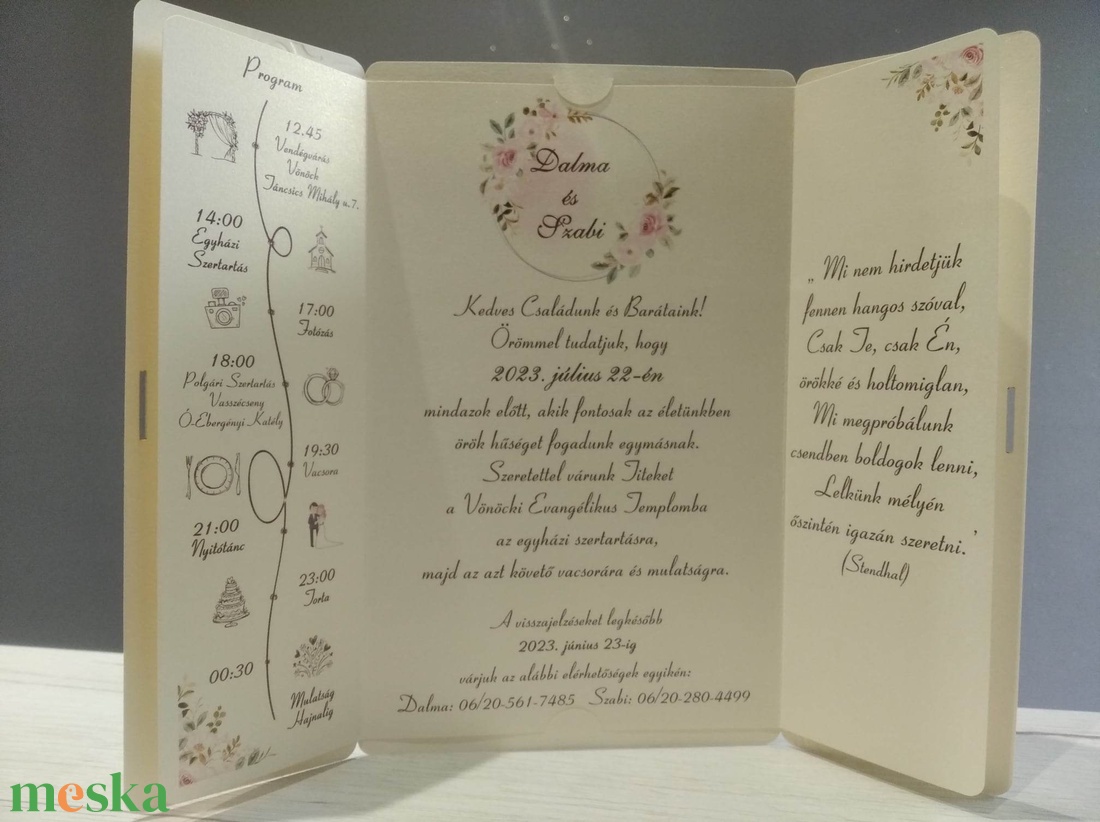 Program
12.45
Vendégvárás
Vönöck
Táncsics Mihály u.7.
14:00
Egyházi
Szertartás
17:00
Fotózás
18:00
Polgári Szertartás
Vasszécseny
Ó-Ebergényi Katély
19:30
Vacsora
21:00
Nyitótánc
23:00
Torta
00:30
Mulatság
Hajnalig
Dalma
és
Szabi
Kedves Családunk és Barátaink!
Örömmel tudatjuk, hogy
2023. július 22-én
mindazok előtt, akik fontosak az életünkben
örök hűséget fogadunk egymásnak.
Szeretettel várunk Titeket
a Vönöcki Evangélikus Templomba
az egyházi szertartásra,
majd az azt követő vacsorára és mulatságra.
A visszajelzéseket legkésőbb
2023. június 23-ig
várjuk az alábbi elérhetőségek egyikén:
Dalma: 06/20-561-7485 Szabi: 06/20-280-4499
„Mi nem hirdetjük
fennen hangos szóval,
Csak Te, csak Én,
örökké és holtomiglan,
Mi megpróbálunk
csendben boldogok lenni,
Lelkünk mélyén
őszintén igazán szeretni.’
(Stendhal)
meska